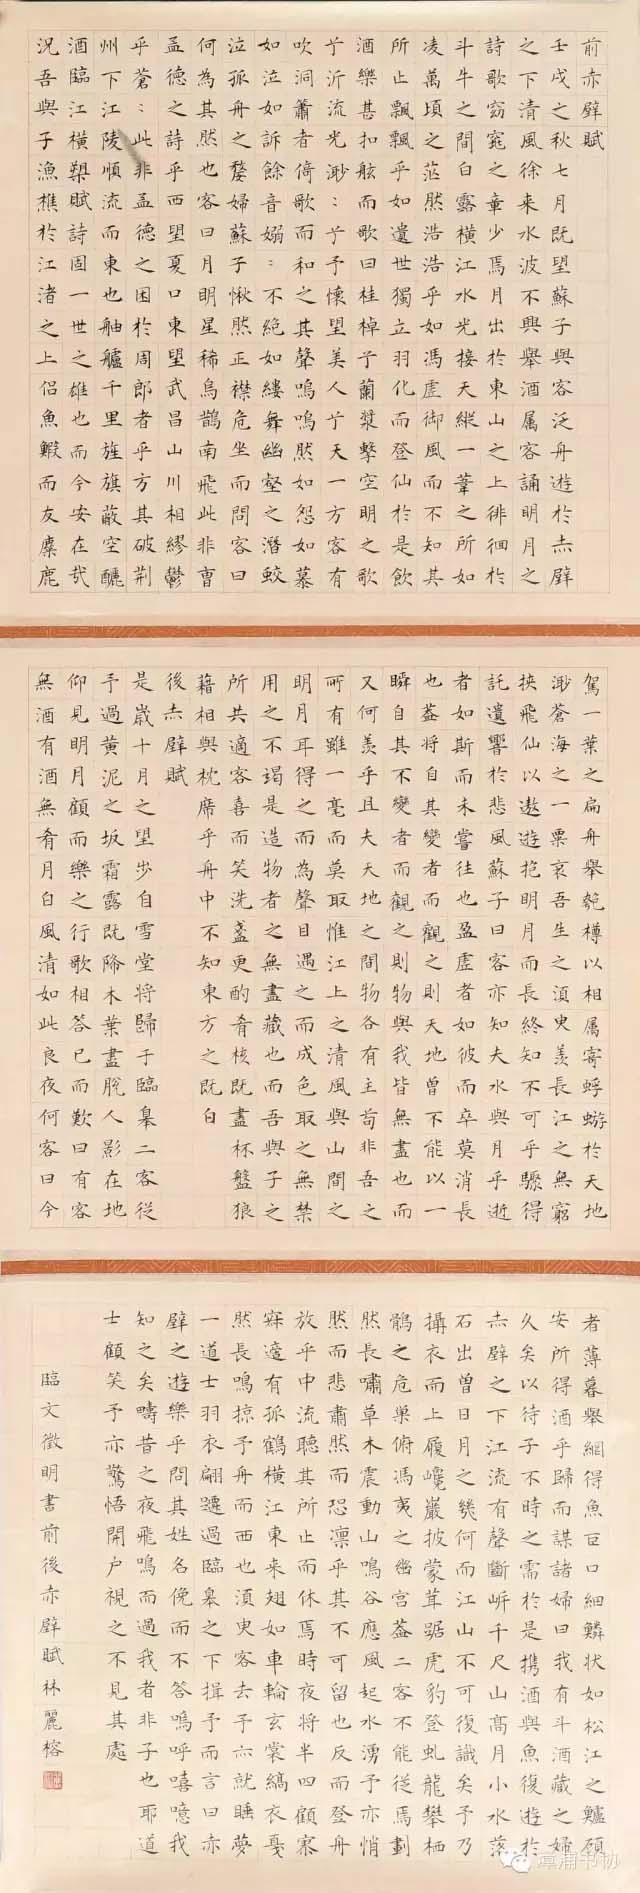 前赤壁賦
壬戌之秋七月既望蘇子與客泛舟遊於赤壁
之下清風徐来水波不興舉酒属客誦明月之
詩歌窈窕之章少焉月出於東山之上徘徊於
斗牛之間白露橫江水光接天縱一葦之所如
凌萬頃之茫然浩浩乎如馮虛御風而不知其
所止飄飄乎如遺世獨立羽化而登仙於是飲
酒樂甚扣舷而歌曰桂棹子蘭槳擊空明之歌
兮泝流光渺:兮予懷望美人兮天一方客有
吹洞簫者倚歌而和之其聲嗚嗚然如怨如慕
如泣如訴餘音嫋:不絕如縷舞幽壑之潛蛟
泣孤舟之嫠婦蘇子愀然正襟危坐而問客曰
何為其然也客曰月明星稀烏鵲南飛此非曹
孟德之詩乎西望夏口東望武昌山川相繆鬱
乎蒼:此非孟德之困於周郎者乎方其破荊
州下江陵順流而東也舳艫千里旌旗蔽空釃
酒臨江橫槊賦詩固一世之雄也而今安在哉
況吾與子漁樵於江渚之上侶魚鰕而友麋鹿
駕一葉之扁舟舉匏樽以相属寄蜉蝣於天地
渺蒼海之一粟哀吾生之須臾羨長江之無窮
挾飛仙以遨遊抱明月而長終知不可乎驟得
託遺響於悲風蘇子曰客亦知夫水與月乎逝
者如斯而未嘗往也盈虛者如彼而卒莫消長
也蓋將自其變者而觀之則天地曾不能以一
瞬自其不變者而觀之則物與我皆無盡也而
又何羨乎且夫天地之間物各有主苟非吾之
所有雖一毫而莫取惟江上之清風與山間之
明月耳得之而為聲目遇之而成色取之無禁
用之不竭是造物者之無盡藏也而吾與子之
所共適客喜而笑洗盞更酌肴核既盡杯盤狼
藉相與枕席乎舟中不知東方之既白
後赤壁賦
是歲十月之望步自雪堂將歸于臨皋二客從
予過黃泥之坂霜露既降木葉盡脫人影在地
仰見明月顧而樂之行歌相答已而歎曰有客
無酒有酒無肴月白風清如此良夜何客曰今
者薄暮舉網得魚巨口細鱗状如松江之鱸顧
安所得酒乎歸而謀諸婦曰我有斗酒藏之婦
久矣以待子不時之需於是攜酒與魚復遊於
赤壁之下江流有聲斷岸千尺山高月小水落
石出曾日月之幾何而江山不可復識矣予乃
攝衣而上履巉巖披蒙茸踞虎豹登虬龍攀栖
鶻之危巢俯馮夷之幽宮蓋二客不能從焉劃
然長嘯草木震動山鳴谷應風起水湧予亦悄
然而悲肅然而恐凜乎其不可留也反而登舟
放乎中流聽其所止而休焉時夜將半四顧寂
寥適有孤鶴橫江東来翅如車輪玄裳縞衣戛
然長鳴掠予舟而西也須臾客去予亦就睡夢
一道士羽衣翩躚過臨皋之下揖予而言曰赤
壁之遊樂乎問其姓名俛而不答嗚呼嘻噫我
知之矣疇昔之夜飛鳴而過我者非子也耶道
士顧笑予亦驚悟開户視之不見其處
臨文徵明書前後赤壁賦林麗榕
漳浦书协